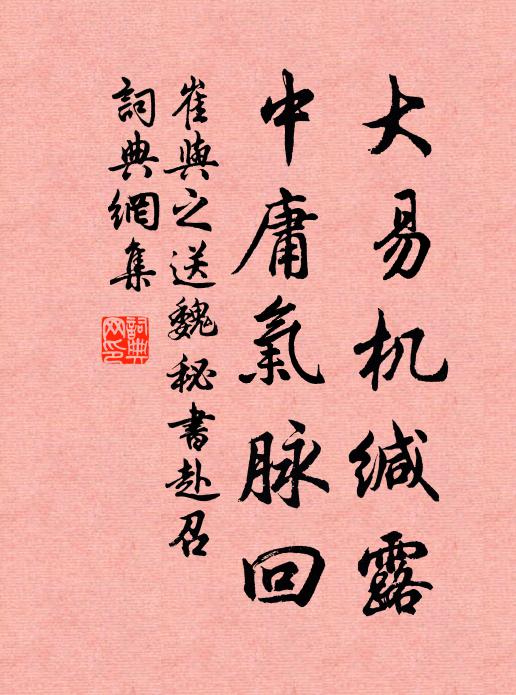 大易机缄露
中庸氣脉回
崔與之送魏秘書赴召
詞典網集
詞典网印